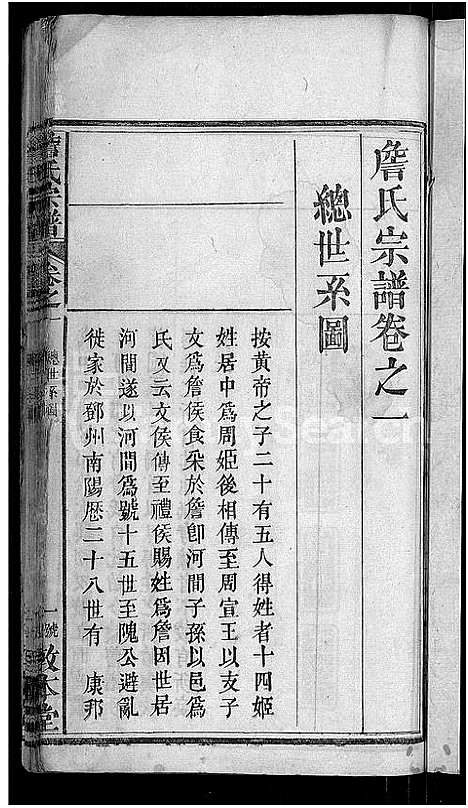 詹氏宗譜卷之一
總世系圖
按黃帝之子二十有五人得姓者十四姬
姓居中爲周姬後相傳至周宣王以支子
文爲詹侯食采於詹卽河間子孫以邑爲
氏又云文侯傳至禮侯賜姓爲詹因世居
河間遂以河間爲號十五世至隗公避亂
徙家於鄧州南陽歷二十八世有 康邦
詹氏宗譜 卷之一 總世系圖 一號 敦本堂